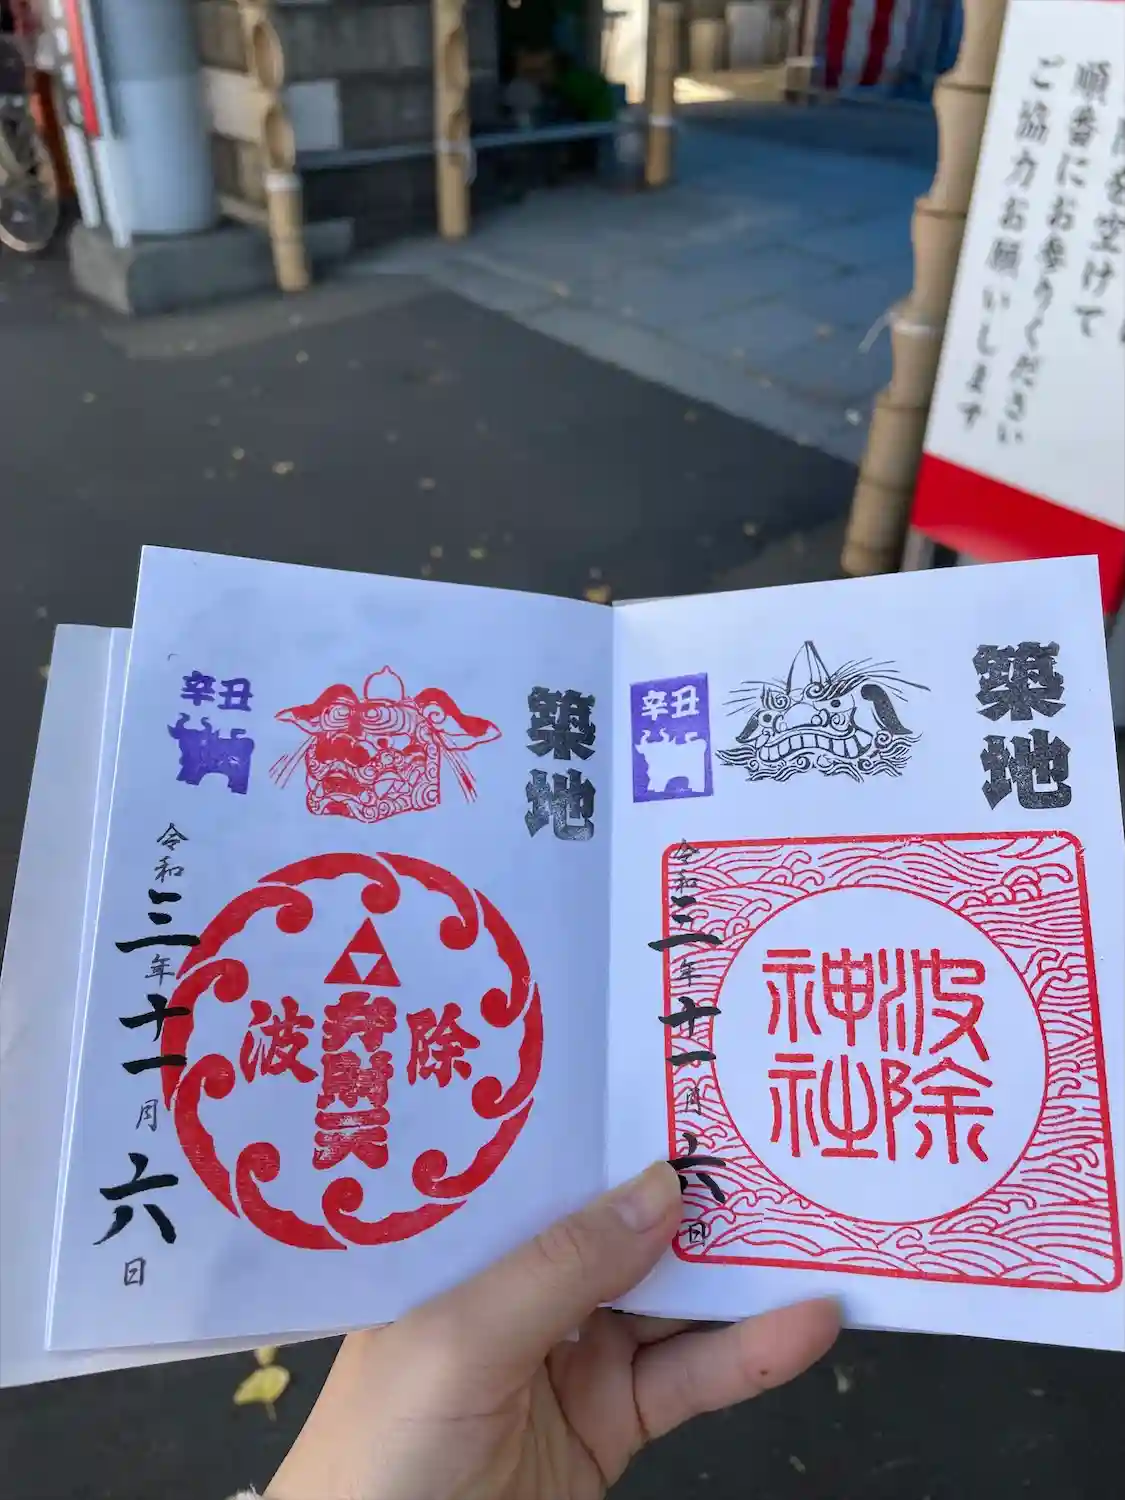 間を空けて
順番にお参りください
ご協力お願いします
築地
辛丑
波除
弁財天
令和三年十一月六日
築地
辛丑
波除
神社
令和三年十一月六日